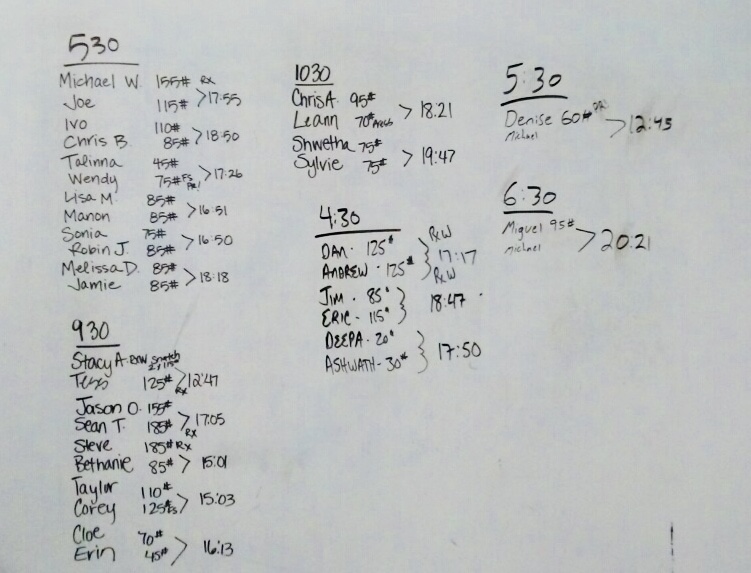 530
Michael W. 155# Rx
Joe 115# > 17:55
Ivo 110#
Chris B. 85# > 18:50
Talinna 45#
Wendy 75# FS PR! > 17:26
Lisa M. 85#
Manon 85# > 16:51
Sonia 75#
Robin J. 85# > 16:50
Melissa D. 85#
Jamie 85# > 18:18
930
Stacy A. Row snatch
Tess 125# Rx > 12:47
Jason O. 155#
Sean T. 185# Rx > 17:05
Steve 185# Rx
Bethanie 85# > 15:01
Taylor 110#
Corey 125# FS > 15:03
Cloe 70#
Erin 45# > 16:13
1030
Chris A. 95#
Leann 70# > 18:21
Shwetha 75#
Sylvie 75# > 19:47
4:30
DAN · 125# RxW
ANDREW · 125# RxW } 17:17
JIM · 85#
ERIC · 115# } 18:47
DEEPA · 20#
ASHWATH - 30# } 17:50
5:30
Denise 60# PR
Michael > 12:43
6:30
Miguel 95#
Michael > 20:21